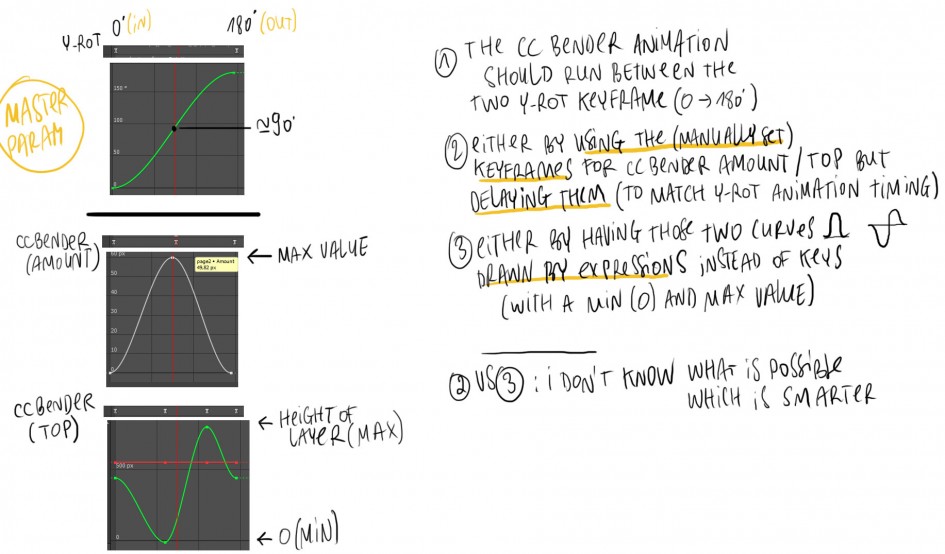 0° (IN)
180° (OUT)
Y-ROT
150 °
100
50
0
MASTER
PARAM
≃90°
CC BENDER
(AMOUNT)
60 px
page2 • Amount
49,82 px
50
40
30
20
10
0
← MAX VALUE
CC BENDER
(TOP)
500 px
0
← HEIGHT OF
LAYER (MAX)
← 0 (MIN)
① THE CC BENDER ANIMATION
SHOULD RUN BETWEEN THE
TWO Y-ROT KEYFRAME (0 → 180°)
② EITHER BY USING THE (MANUALLY SET)
KEYFRAMES FOR CC BENDER AMOUNT / TOP BUT
DELAYING THEM (TO MATCH Y-ROT ANIMATION TIMING)
③ EITHER BY HAVING THOSE TWO CURVES
DRAWN BY EXPRESSIONS INSTEAD OF KEYS
(WITH A MIN (0) AND MAX VALUE)
② VS ③ : I DON'T KNOW WHAT IS POSSIBLE
WHICH IS SMARTER